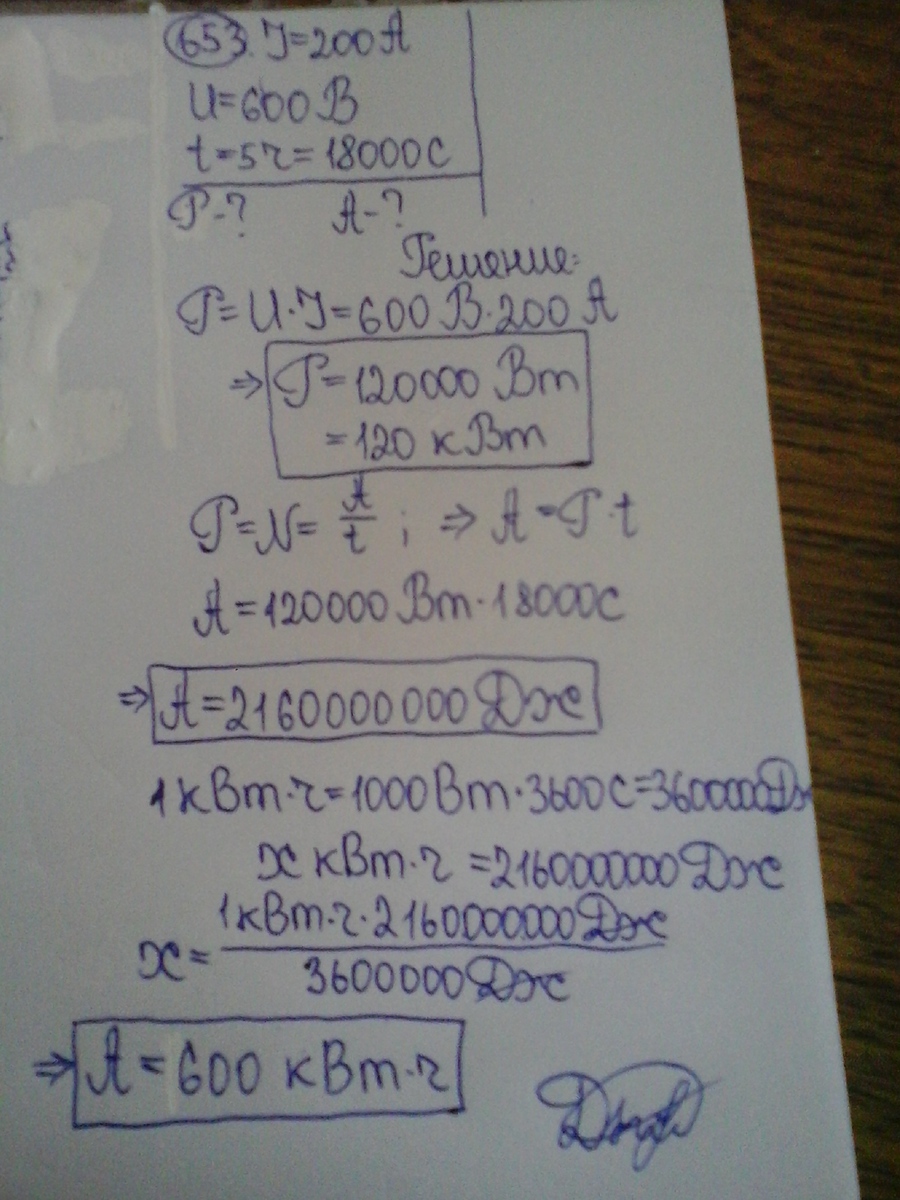 653. I=200А
U=600В
t=5ч=18000С
P-? A-?
Решение:
P=U·I=600В·200А
⇒ P=120000 Вт
=120 кВт
P=N=A/t; ⇒ A=P·t
A=120000Вт·18000С
⇒ A=2160000000Дж
1кВт·ч=1000Вт·3600С=3600000Дж
x кВт·ч =2160000000Дж
x= 1кВт·ч·2160000000Дж / 3600000Дж
⇒ A=600 кВт·ч